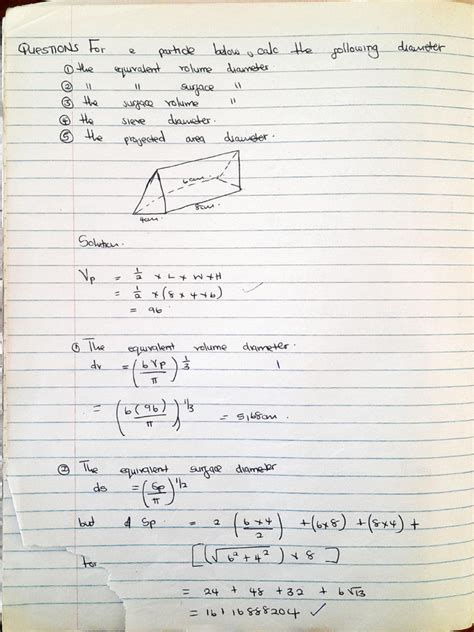 QUESTIONS For a particle below, calc the following diameter
① the equivalent volume diameter
② " " surface "
③ the surface volume "
④ the sieve diameter.
⑤ the projected area diameter.
6cm
4cm
8cm
Solution.
Vp = 1/2 × L × W × H
= 1/2 × (8 × 4 × 6)
= 96
① The equivalent volume diameter.
dv = (6Vp/π)^1/3
= (6(96)/π)^1/3 = 5,68cm
② The equivalent surface diameter
ds = (Sp/π)^1/2
but Sp = 2 (6×4/2) + (6×8) + (8×4) +
[(√6²+4²) × 8]
for
= 24 + 48 + 32 + 6√13
= 161 16888204 ✓